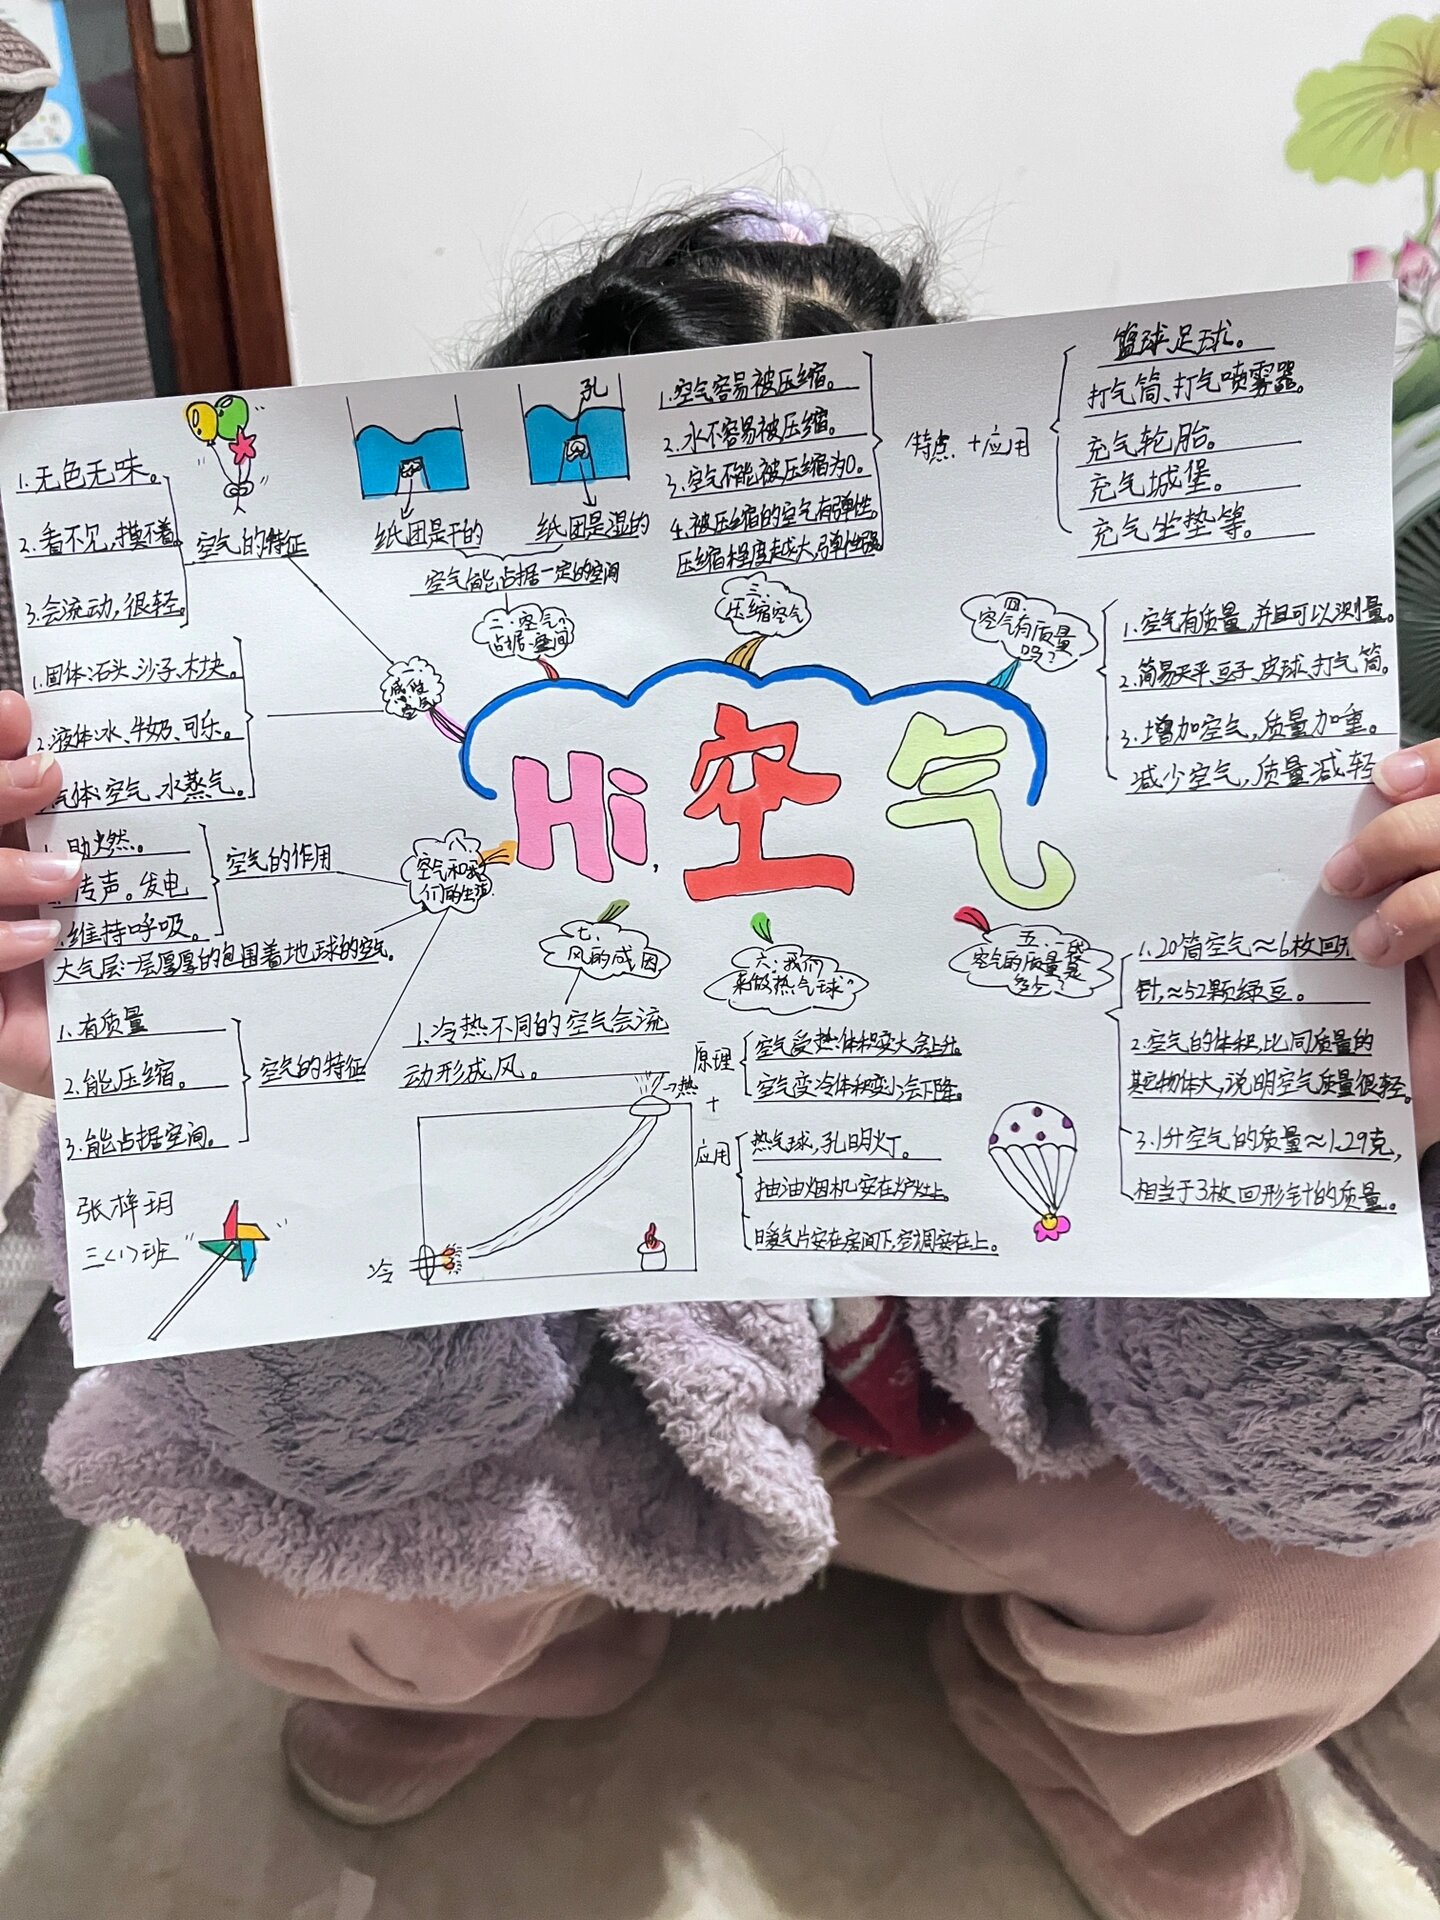 Hi,空气
一、感受空气
空气的特征
1.无色无味。
2.看不见,摸不着。
3.会流动,很轻。
1.固体:石头、沙子、木块。
2.液体:水、牛奶、可乐。
气体:空气、水蒸气。
二、空气能占据空间
孔
纸团是干的
纸团是湿的
空气能占据一定的空间
三、
压缩空气
1.空气容易被压缩。
2.水不容易被压缩。
3.空气不能被压缩为0。
4.被压缩的空气有弹性。
压缩程度越大,弹性越强
特点+应用
篮球、足球。
打气筒、打气喷雾器。
充气轮胎。
充气城堡。
充气坐垫等。
四、
空气有质量
吗?
1.空气有质量,并且可以测量。
2.简易天平、豆子、皮球、打气筒。
3.增加空气,质量加重。
减少空气,质量减轻
五、一袋
空气的质量是
多少?
1.20筒空气≈6枚回形
针,≈52颗绿豆。
2.空气的体积,比同质量的
其它物体大,说明空气质量很轻。
3.1升空气的质量≈1.29克,
相当于3枚回形针的质量。
六、我们
来做“热气球”
原理
空气受热:体积变大会上升。
空气变冷体积变小会下降。
+
应用
热气球,孔明灯。
抽油烟机安在炉灶上。
暖气片安在房间下,空调安在上。
七、
风的成因
1.冷热不同的空气会流
动形成风。
热
冷
八、
空气和我
们的生活
空气的作用
1.助燃。
传声。发电
维持呼吸。
大气层:一层厚厚的包围着地球的空气。
空气的特征
1.有质量
2.能压缩。
3.能占据空间。
张梓玥
三〈1〉班